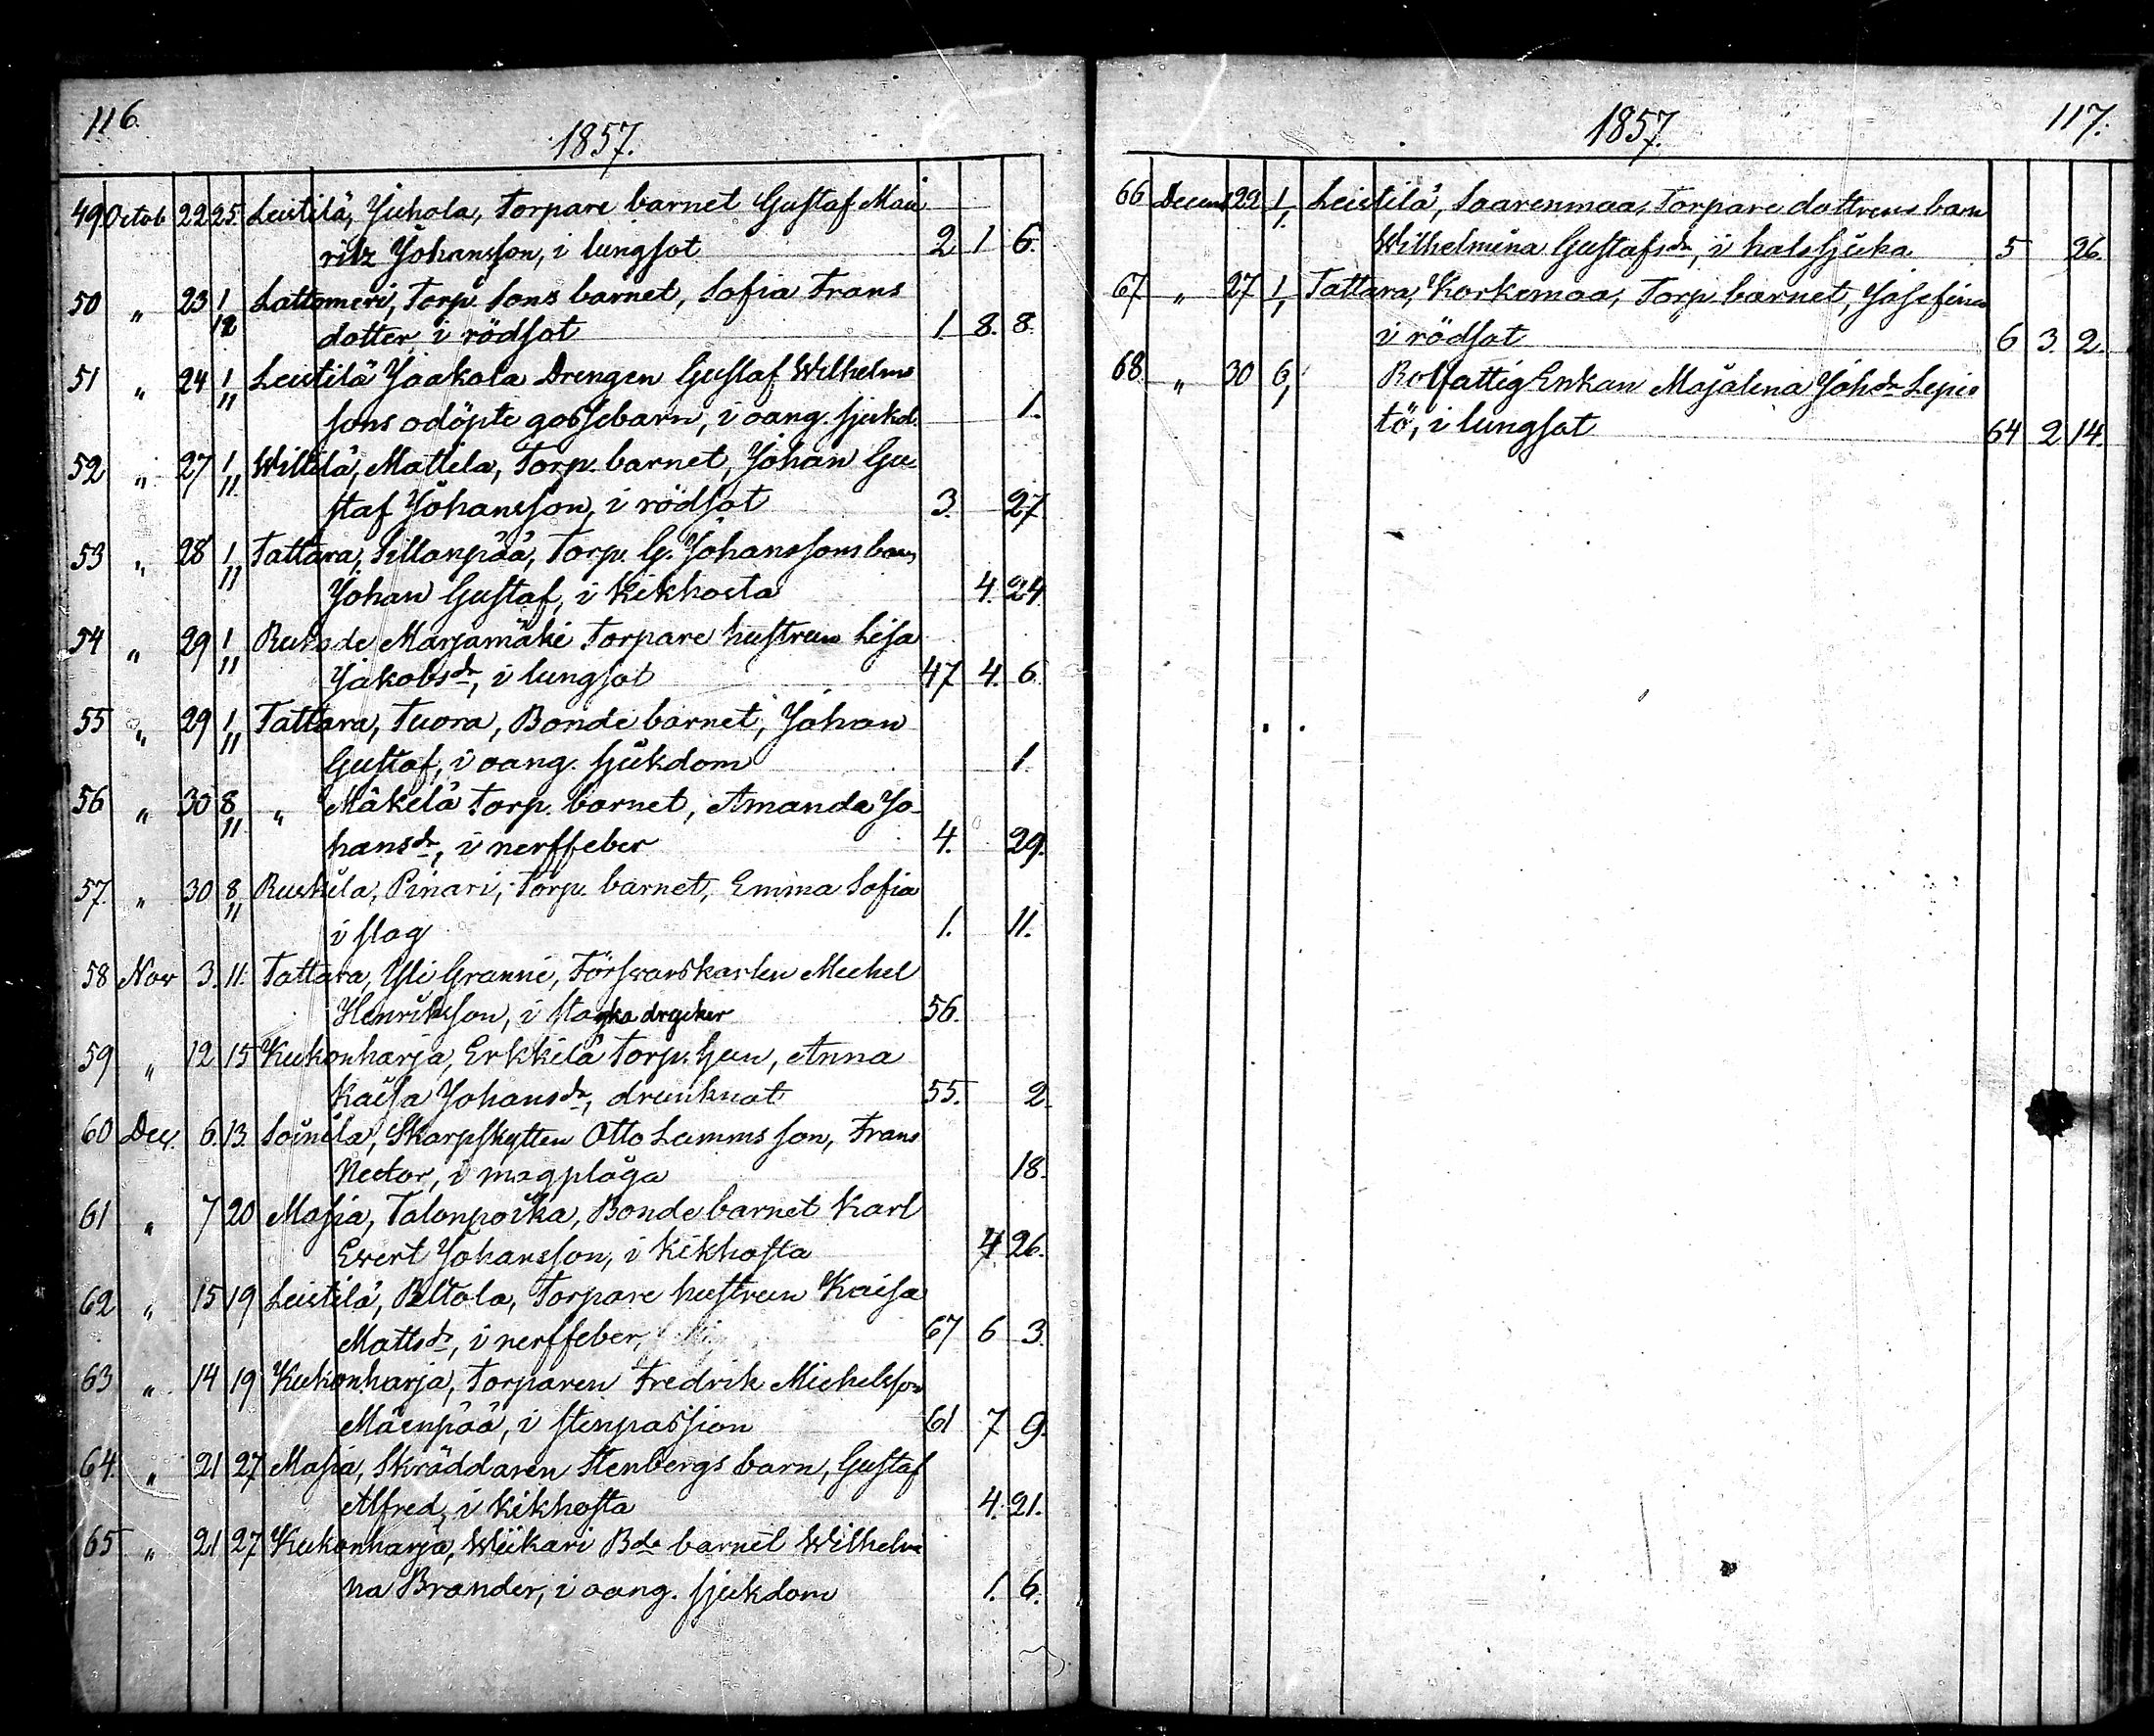 116.
1857.
49 Octob 22 25 Leistilä, Juhola, Torpare barnet Gustaf Mau
ritz Johansson, i lungsot 2 1 6.
50 " 23 1/12 Lattomeri, Torp. Sons barnet, Sofia Frans
dotter, i rödsot 1. 8. 8.
51 " 24 1/11 Leistilä Jaakola Drengen Gustaf Wilhelms
sons odöpte gossebarn, i oang. sjukd. 1.
52 " 27 1/11 Wiltilä, Mattila, Torp. barnet, Johan Gu
staf Johansson, i rödsot 3. 27
53 " 28 1/11 Tattara, Sillanpää, Torp. G. Johanssons barn
Johan Gustaf, i Kikhosta 4. 24.
54 " 29 1/11 Marjamäki Torpare hustrun Lisa
Jakobsdr, i lungsot 47 4. 6.
55 " 29 1/11 Tattara, Tuora, Bonde barnet, Johan
Gustaf, i oang. sjukdom 1.
56 " 30 8/11 " Mäkelä Torp. barnet, Amanda Jo-
hansdr, i nerffeber 4. 29.
57. " 30 8/11 Ruskila, Pinari, Torp. barnet, Emma Sofia
i slag 1. 11.
58 Nov 3. 11. Tattara, Yli Granni, Försvarskarlen Michel
Henriksson, i starka drycker 56.
59 " 12 15 Kukonharja, Erkkilä Torp. hun, Anna
Kaisa Johansdr, drunknat 55. 2.
60 Dec. 6. 13. Soinila, Skarpskytten Otto Lamms son, Frans
Nector, i magplåga 18.
61 " 7 20 Masia, Talonpoika, Bonde barnet Karl
Evert Johansson, i Kikhosta 4 26.
62 " 15 19 Leistilä, Peltola, Torpare hustrun Kaisa
Mattsdr, i nerffeber, 67 6 3.
63 " 14 19 Kukonharja, Torparen Fredrik Michelsson
Mäenpää, i stenpassion 61 7 9.
64. " 21 27 Masia, Skräddaren Stenbergs barn, Gustaf
Alfred, i kikhosta 4. 21.
65 " 21 27 Kukonharja, Wiikari Bde barnet Wilhelmi
na Brander, i oang. sjukdom 1. 6.
1857.
117.
66 Decem 22 1/1 Leistilä, Saarenmaa, Torpare dottrens barn
Wilhelmina Gustafsdr, i halssjuka 5 26.
67 " 27 1/1 Tattara, Korkemaa, Torp. barnet, Josefina
i rödsot 6 3. 2.
68. " 30 6/1 Enkan Majalena Johsdr Lepis
tö, i lungsot 64 2 14.